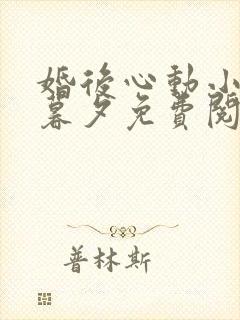 婚后心動小
暮夕免費閱
普林斯